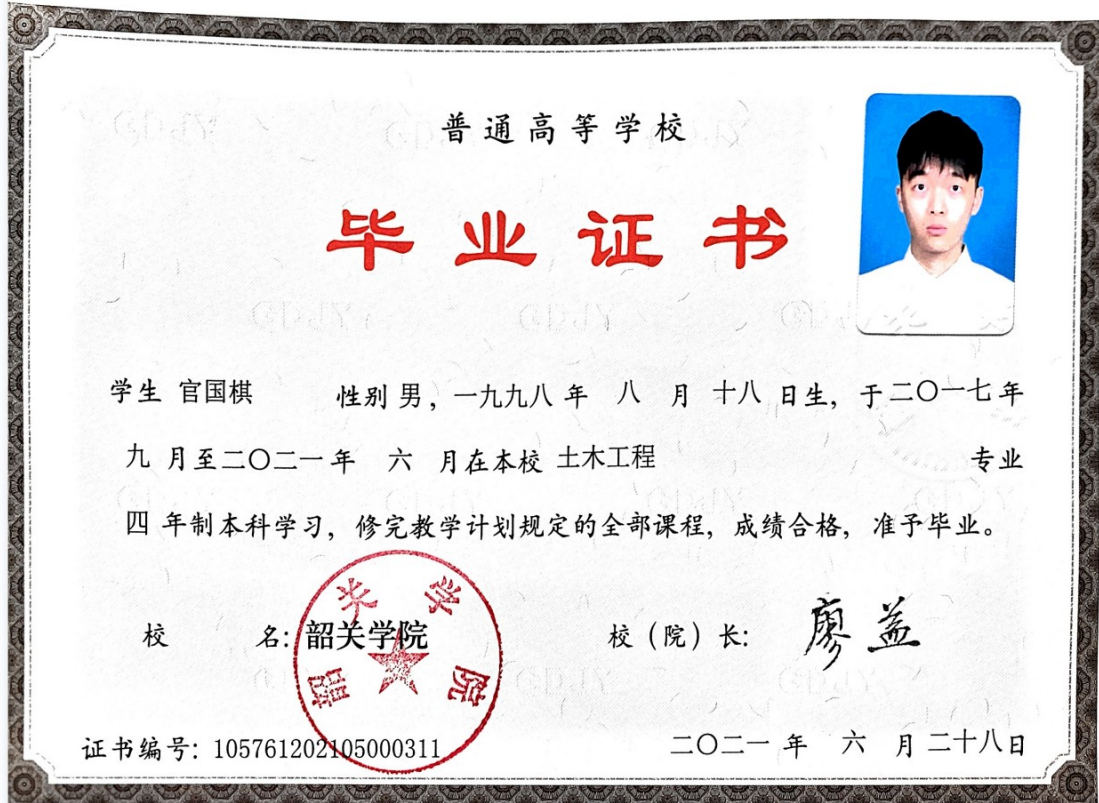 普通高等学校
毕业证书
学生 官国棋 性别 男，一九九八 年 八 月 十八 日生，于二〇一七年
九 月至二〇二一年 六 月在本校 土木工程 专业
四 年制本科学习，修完教学计划规定的全部课程，成绩合格，准予毕业。
校 名: 韶关学院 校（院）长: 廖益
韶关学院
证书编号: 105761202105000311 二〇二一 年 六 月 二十八日